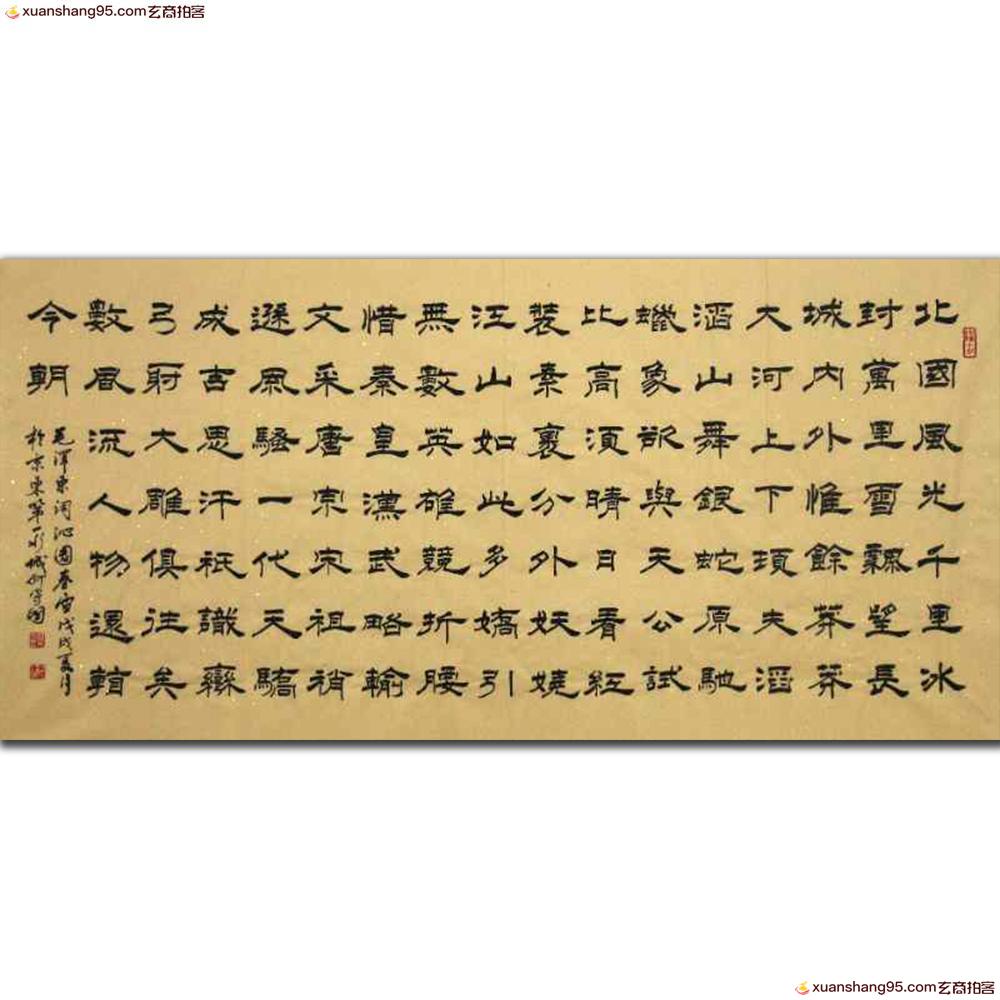 xuanshang95.com玄商拍客
北國風光千里冰
封萬里雪飄望長
城內外惟餘莽莽
大河上下頃失滔
滔山舞銀蛇原馳
蠟象欲與天公試
比高須晴日看紅
裝素裹分外妖嬈
江山如此多嬌引
無數英雄競折腰
惜秦皇漢武略輸
文采唐宗宋祖稍
遜風騷一代天驕
成吉思汗祇識彎
弓射大雕俱往矣
數風流人物還看
今朝
毛澤東詞沁園春雪戊戌夏月
於京東第一
xuanshang95.com玄商拍客